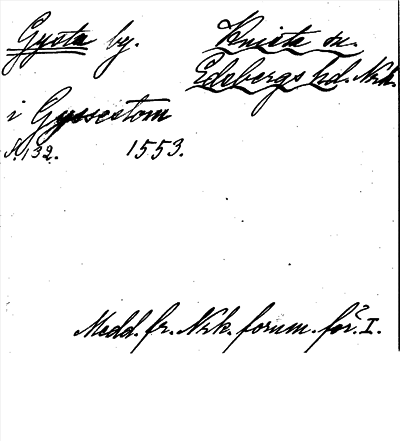 Gysta by. Knista sn.
Edsbergs hd. Nrk.
i Gyssestom
s. 132. 1553.
Medd. fr. Nrk. fornm. för. I.